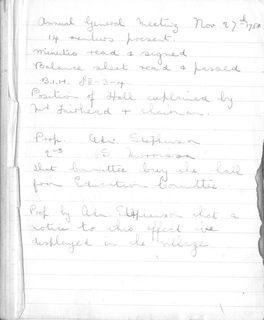 Annual General Meeting Nov 27th
14 members present.
Minutes read & signed
Balance sheet read & passed
B.I.H. £2-3-4
Position of Hall explained by
Mr & chairman.
Prop. Adv. Stephenson
2nd
that committee buy the hall
from Education Committee.
Prop by Adv. Stephenson that a
notice to this effect be
displayed in the village